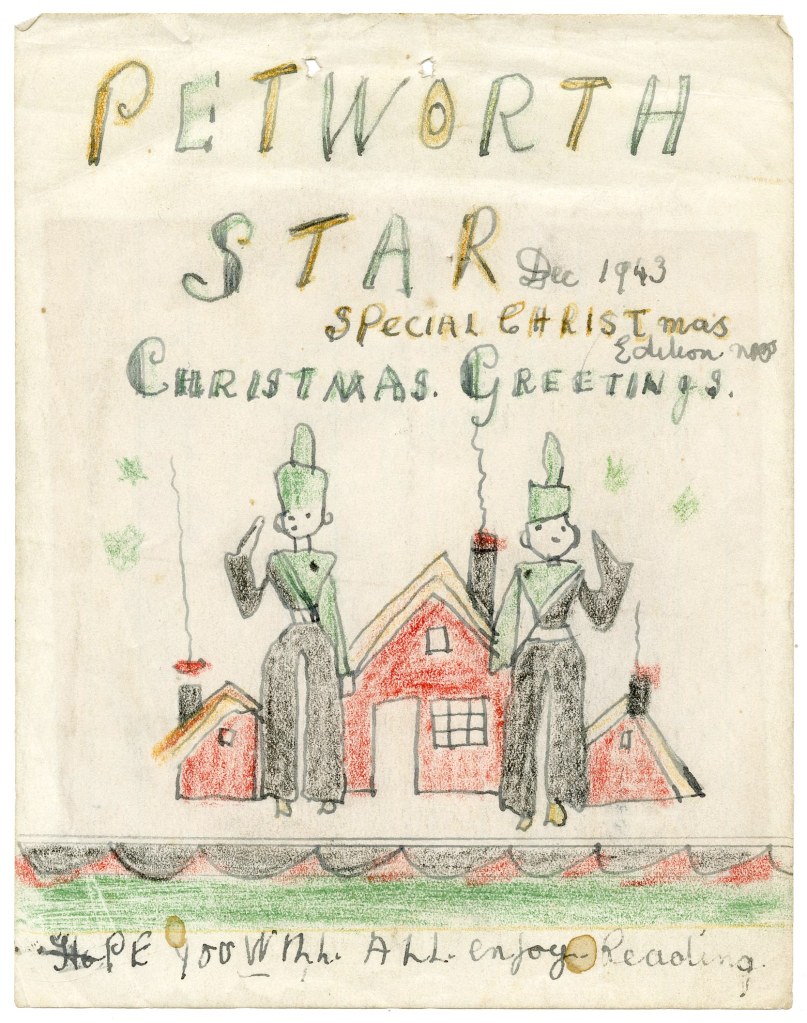 PETWORTH
STAR Dec 1943
SPECIAL CHRISTmas
Edition
CHRISTMAS. GREETINGS.
HoPE you Will. ALL. enjoy Reading.